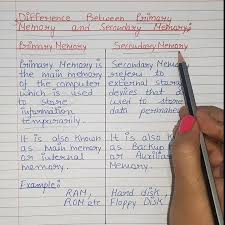 Difference Between Primary
Memory and Secondary Memory:
Primary Memory Secondary Memory
Primary Memory is
the main memory
of the computer
which is used
to store
information
temporarily.
Secondary Memory
refers to
external storage
devices that
used to store
data permanen
It is also known
as main memory
or internal
memory.
It is also k
as Backup
or Auxiliar
Memory.
Example:
RAM,
ROM etc
Hard disk,
Floppy Disk